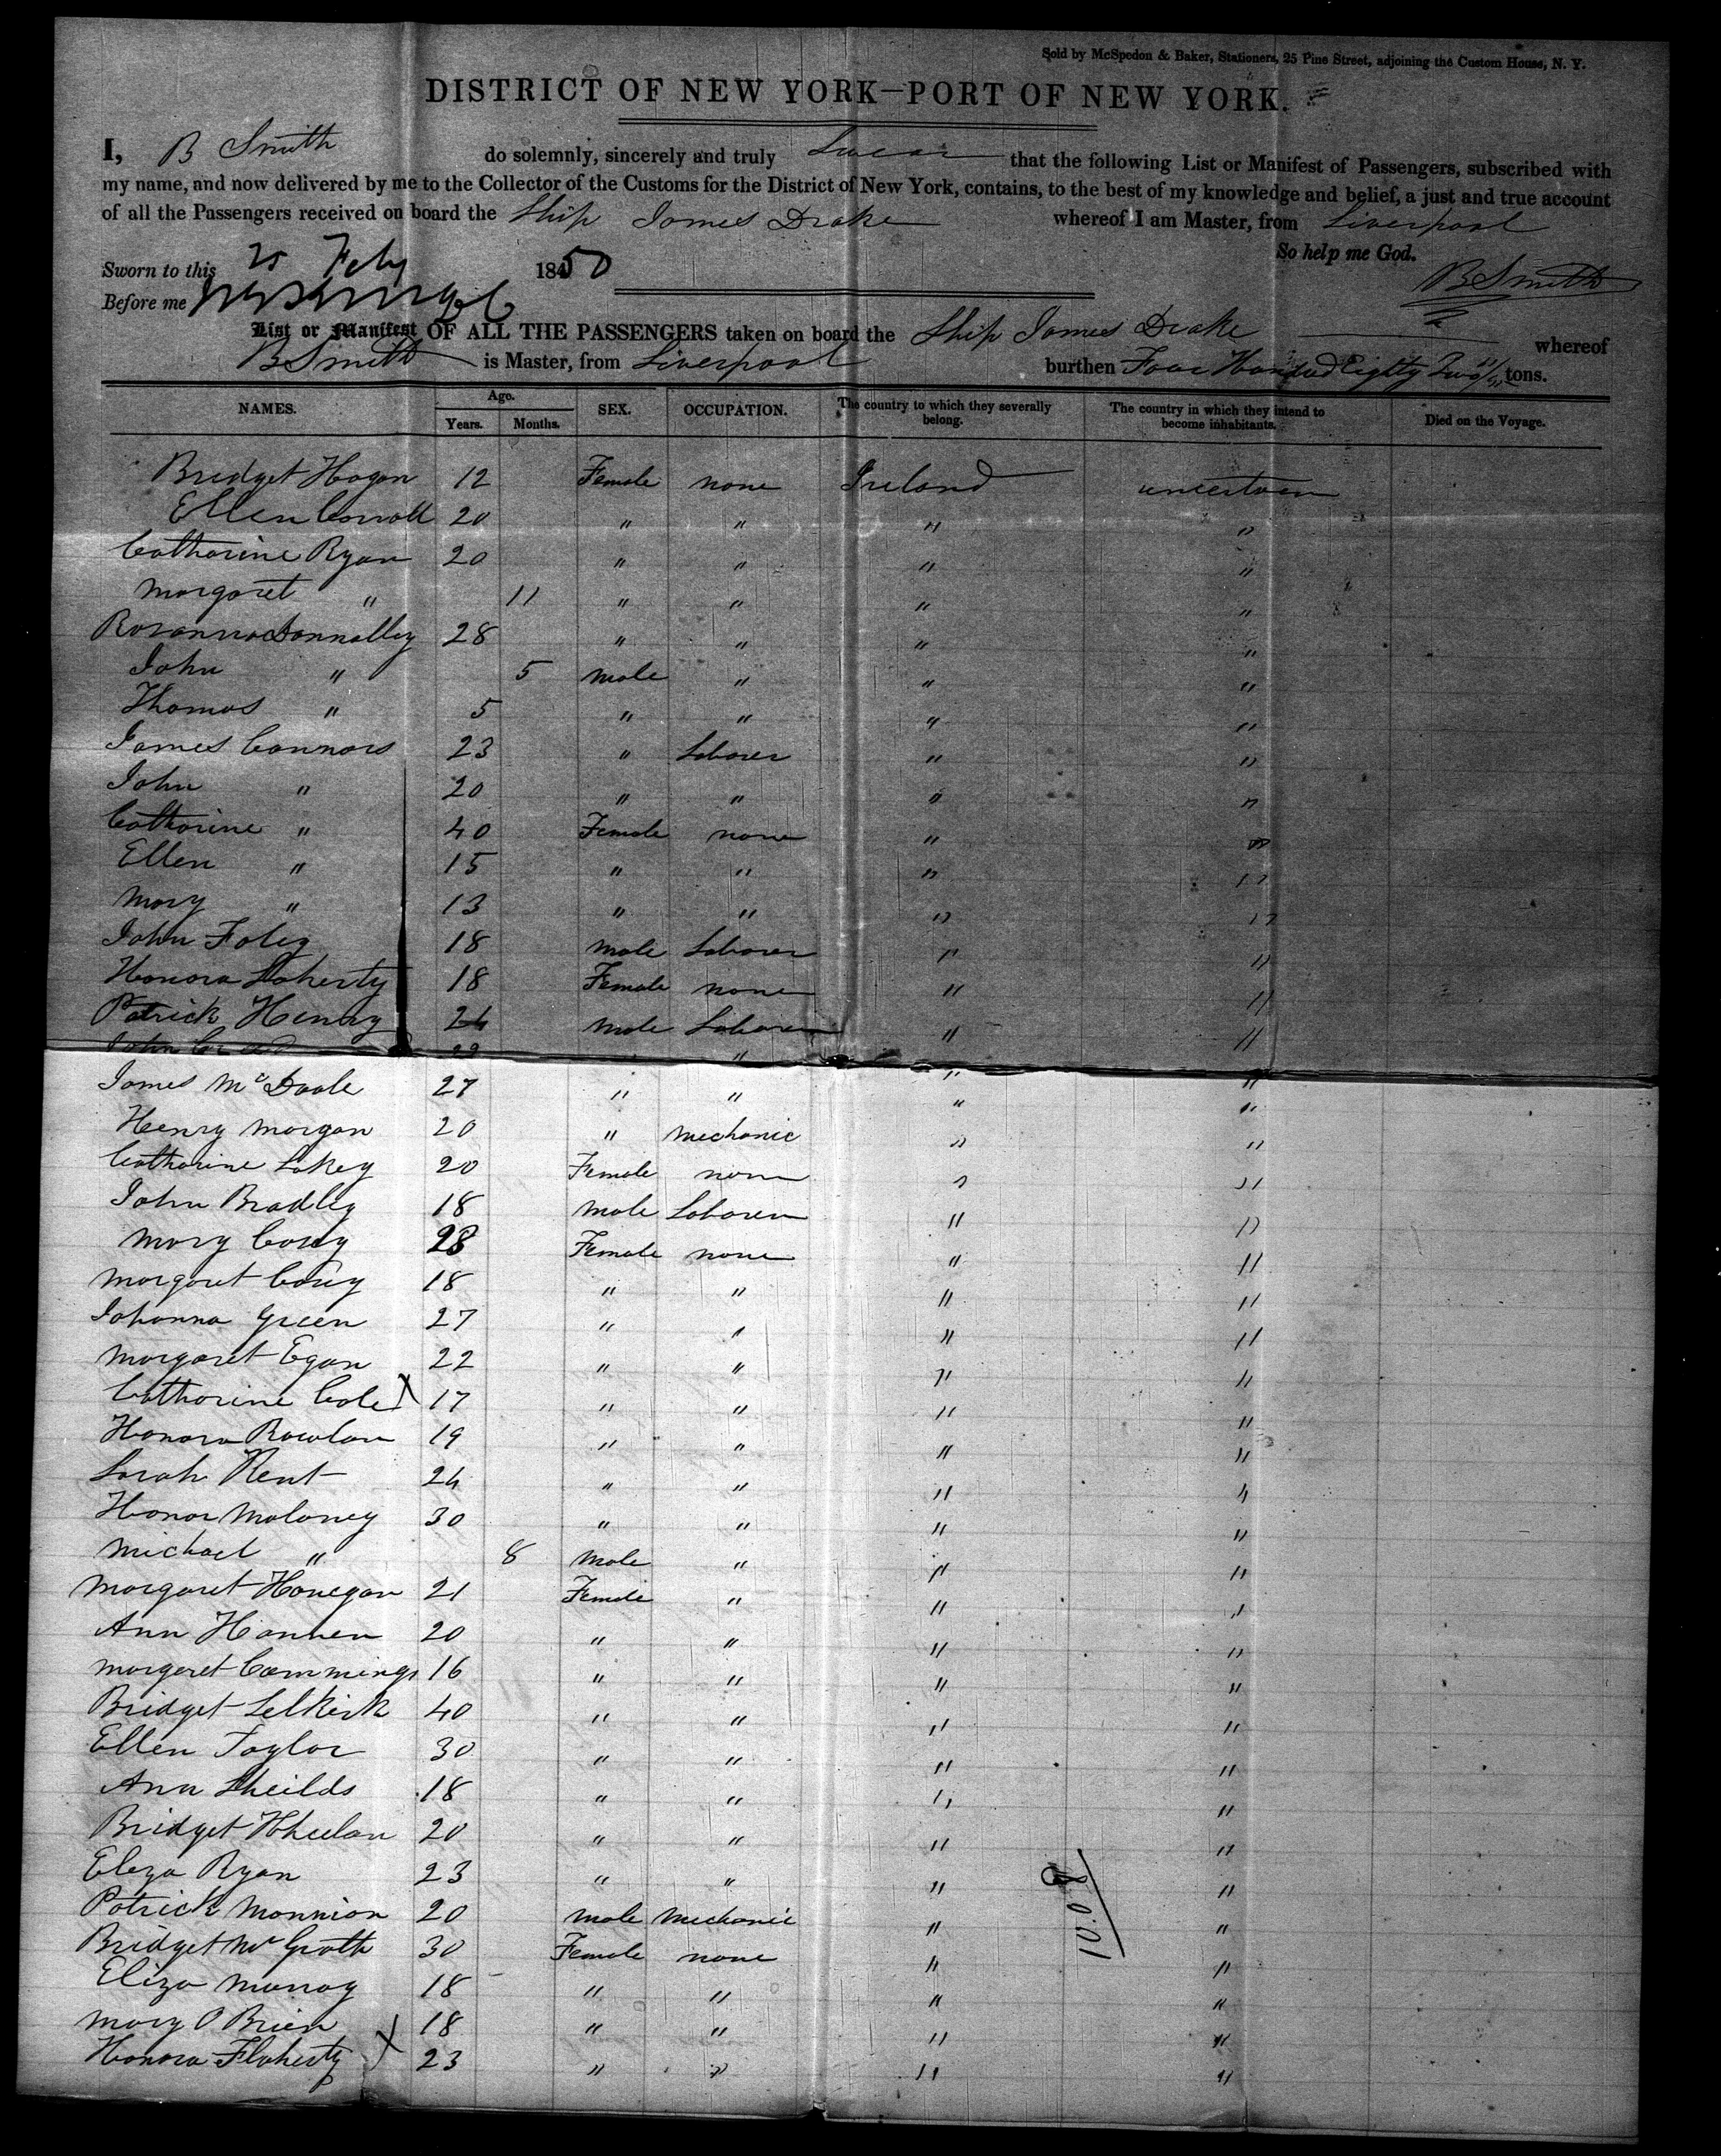 Sold by McSpedon & Baker, Stationers, 25 Pine Street, adjoining the Custom House, N. Y.
DISTRICT OF NEW YORK—PORT OF NEW YORK.
I, B Smith do solemnly, sincerely and truly Swear that the following List or Manifest of Passengers, subscribed with
my name, and now delivered by me to the Collector of the Customs for the District of New York, contains, to the best of my knowledge and belief, a just and true account
of all the Passengers received on board the Ship James Drake whereof I am Master, from Liverpool
So help me God.
Sworn to this 25 Feby 1850
B Smith
Before me
List or Manifest OF ALL THE PASSENGERS taken on board the Ship James Drake whereof
B Smith is Master, from Liverpool burthen Four Hundred Eighty Two 11/95 tons.
NAMES. Age. Years. Months. SEX. OCCUPATION. The country to which they severally belong. The country in which they intend to become inhabitants. Died on the Voyage.
Bridget Hogan 12 Female none Ireland uncertain
Ellen Carroll 20 " " " "
Catharine Ryan 20 " " " "
Margaret " 11 " " " "
Rosanna Donnalley 28 " " " "
John " 5 male " " "
Thomas " 5 " " " "
James Connors 23 " Laborer " "
John " 20 " " " "
Catharine " 40 Female none " "
Ellen " 15 " " " "
Mary " 13 " " " "
John Foley 18 male Laborer " "
Honora Doherty 18 Female none " "
Patrick Henry 24 male Laborer " "
John 22 " " " "
James McDoole 27 " " " "
Henry Morgan 20 " Mechanic " "
Catharine Lakey 20 Female none " "
John Bradley 18 male Laborer " "
Mary Corey 28 Female none " "
Margaret Corey 18 " " " "
Johanna Green 27 " " " "
Margaret Egan 22 " " " "
Catharine Cole X 17 " " " "
Honora Rowlan 19 " " " "
Sarah Kent 24 " " " "
Honor Maloney 30 " " " "
Michael " 8 Male " " "
Margaret Honegan 21 Female " " "
Ann Hannen 20 " " " "
Margaret Cummings 16 " " " "
Bridget Selkirk 40 " " " "
Ellen Taylor 30 " " " "
Ann Sheilds 18 " " " "
Bridget Whelan 20 " " " "
Eliza Ryan 23 " " " "
Patrick Mannion 20 male Mechanic " "
Bridget McGrath 30 Female none " "
Eliza Murray 18 " " " "
Mary O Brien 18 " " " "
Honora Flaherty X 23 " " " "
10.08